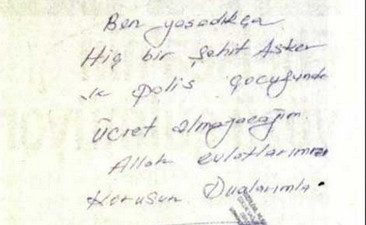 Ben yaşadıkça
Hiç bir şehit Asker
ve polis çocuğundan
ücret almayacağım
Allah evlatlarımızı
Korusun Dualarımla.